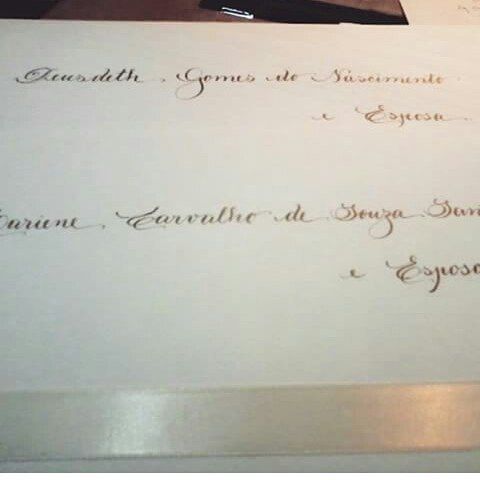 Deusdeth Gomes do Nascimento
e Esposa
Carvalho de Souza
e Esposo